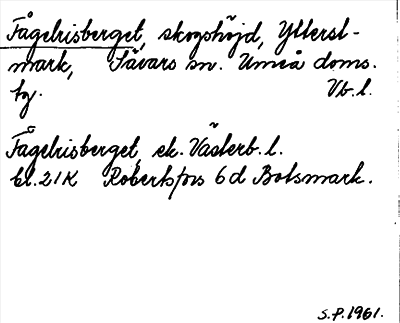 Fågelrisberget, skogshöjd, Ytterst-
mark, Sävars sn. Umeå doms.
hg. Vb.l.
Fågelrisberget, ek. Västerb.l.
bl. 21K Robertsfors 6d Botsmark.
S.P.1961.